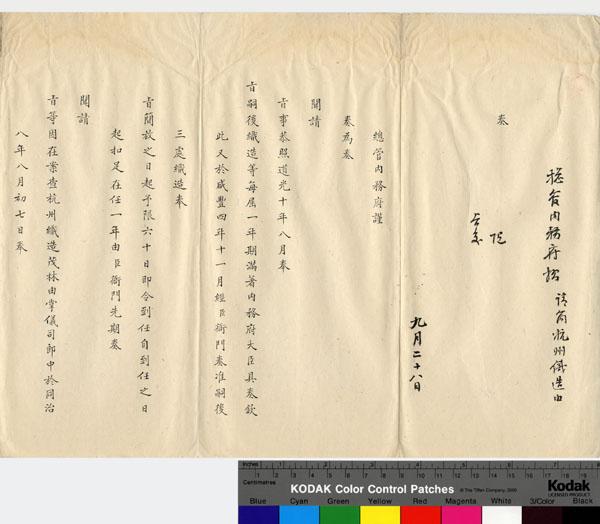 總管內務府摺 請簡杭州織造由
旨
九月二十八日
奏
總管內務府謹
奏為奏
聞請
旨事恭照道光十年八月奉
旨嗣後織造等每屆一年期滿著內務府大臣具奏欽
此又於咸豐四年十一月經臣衙門奏准嗣後
三處織造奉
旨簡放之日起予限六十日即令到任自到任之日
起扣足在任一年由臣衙門先期奏
聞請
旨等因在案查杭州織造茂林由掌儀司郎中於同治
八年八月初七日奉
Inches
Centimetres
KODAK Color Control Patches © The Tiffen Company, 2000
Kodak
LICENSED PRODUCT
Blue Cyan Green Yellow Red Magenta White 3/Color Black